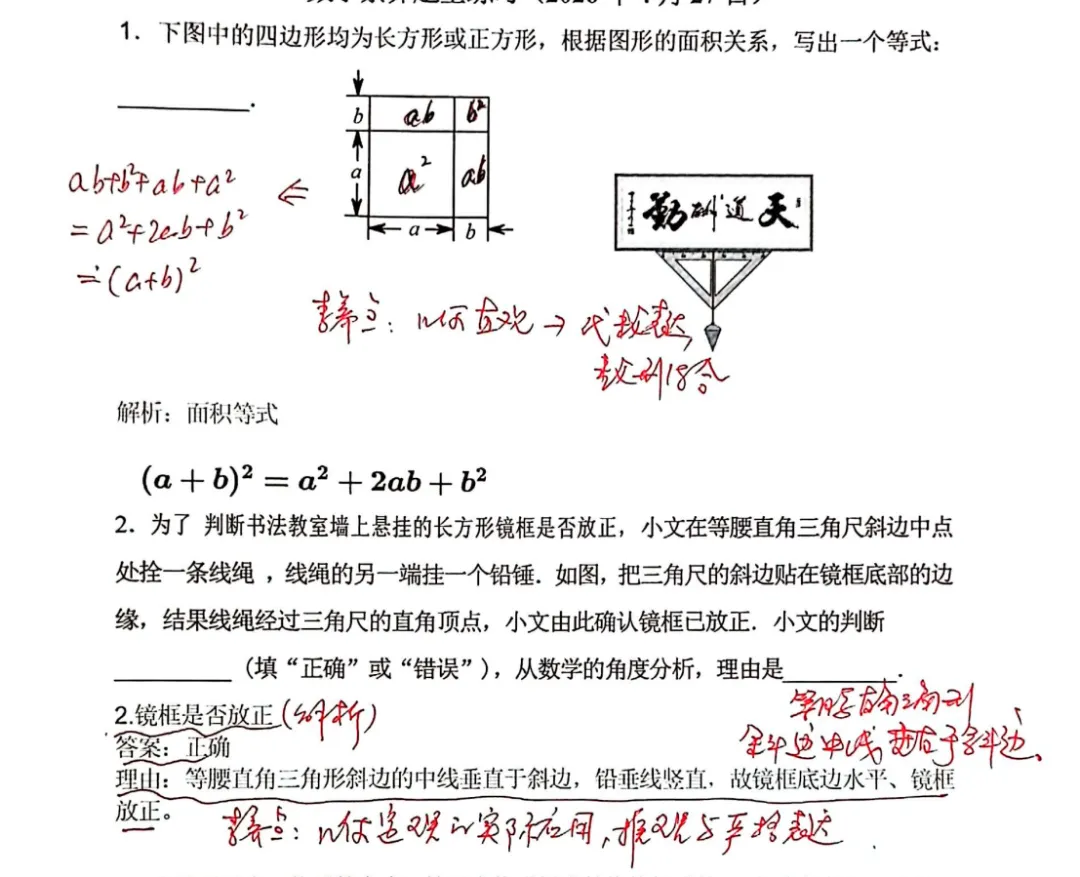 1. 下图中的四边形均为长方形或正方形，根据图形的面积关系，写出一个等式：
________.
b
a
a
b
ab
b²
a²
ab
ab+b²+ab+a²
=a²+2ab+b²
=(a+b)²
天道酬勤
素养点：几何直观→代数表达
数形结合
解析：面积等式
(a + b)² = a² + 2ab + b²
2. 为了 判断书法教室墙上悬挂的长方形镜框是否放正，小文在等腰直角三角尺斜边中点
处拴一条线绳 ，线绳的另一端挂一个铅锤．如图，把三角尺的斜边贴在镜框底部的边
缘，结果线绳经过三角尺的直角顶点，小文由此确认镜框已放正．小文的判断
________（填“正确”或“错误”），从数学的角度分析，理由是________．
等腰直角三角形
斜边中线垂直于斜边、
2.镜框是否放正(解析)
答案：正确
理由：等腰直角三角形斜边的中线垂直于斜边，铅垂线竖直，故镜框底边水平、镜框
放正。
素养点：几何直观的实际应用，